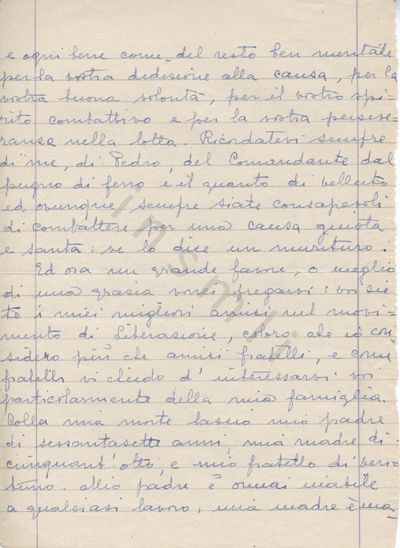 e ogni bene come del resto ben meritate
per la vostra dedizione alla causa, per la
vostra buona volontà, per il vostro spi=
rito combattivo e per la vostra perseve=
ranza nella lotta. Ricordatevi sempre
di me, di Pedro, del Comandante dal
pugno di ferro e il guanto di velluto
ed ovunque, sempre siate consapevoli
di combattere per una causa giusta
e santa: ve lo dice un morituro.
Ed ora un grande favore, o meglio
di una grazia vorrei pregarvi: voi sie=
te i miei migliori amici nel movi=
mento di Liberazione, coloro che io con=
sidero più che amici fratelli, e come
fratelli vi chiedo d'interessarvi voi
particolarmente della mia famiglia.
Colla mia morte lascio mio padre
di sessantasette anni, mia madre di
cinquant'otto, e mio fratello di ven=
tuno. Mio padre è ormai inabile
a qualsiasi lavoro, mia madre è ma=